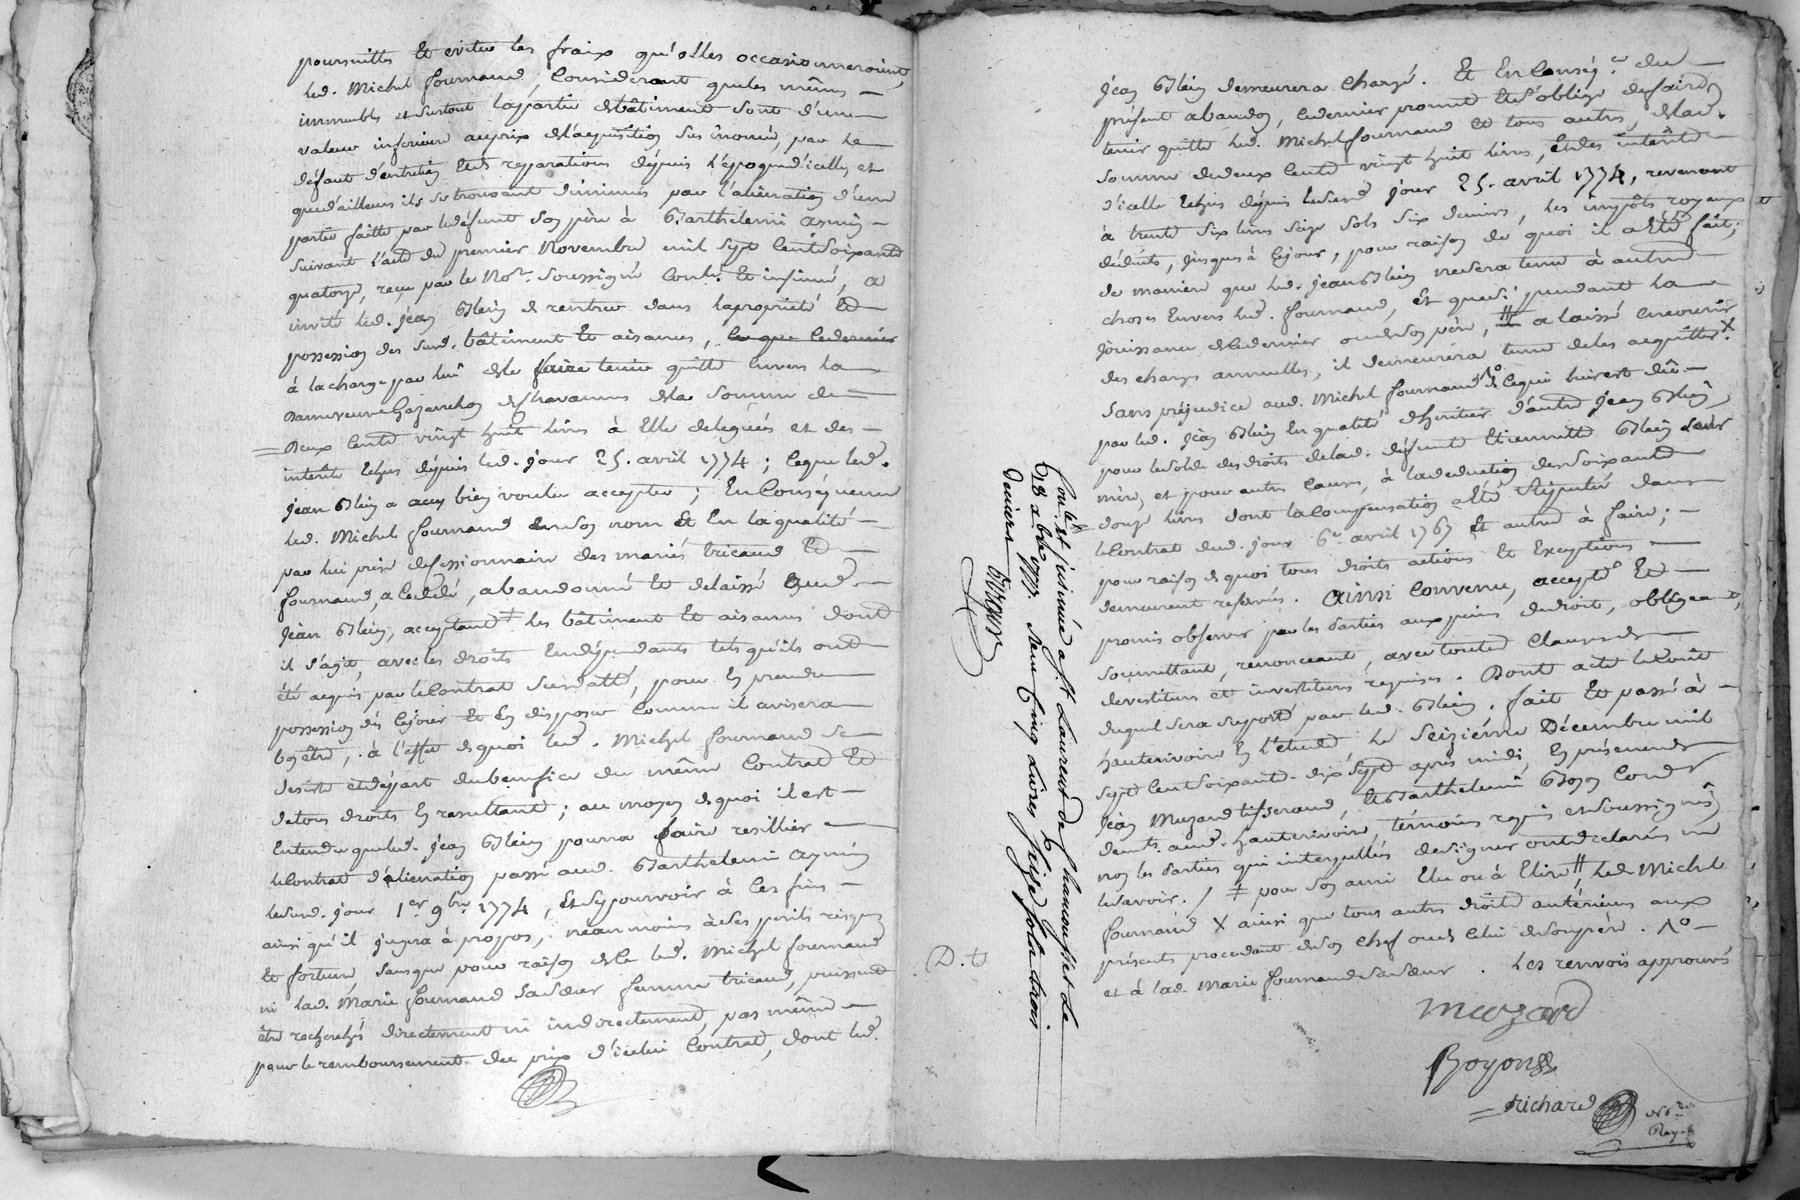 poursuittes et eviter les fraix qu'elles occasionneroient,
led. Michel fournaud, Considerant que les mêmes
immeubles et surtout la partie de bâtiment sont d'une
valeur inferieure au prix de l'acquisition sus énoncé, par le
défaut d'entretien et de reparations dépuis l'époque d'icelle et
que d'ailleurs ils se trouvent diminués par l'aliénation d'une
partie faitte par le défunt son père à Barthelemi aymin
Suivant l'acte du premier Novembre mil sept Cent soixante
quatorze, reçu par le Nore. Soussigné Contr. Et insinué, a
invité led. Jean Blein de rentrer dans la proprieté Et
possession des susd. bâtiment Et aisances, ce que ce dernier
à la charge par lui de le faire tenir quitte Envers la
Dame veuve de Chavannes de la Somme de
Deux Cents vingt huit livres à Elle deleguées et des
interêts Echus dépuis led. jour 25. avril 1774; Ce que led.
Jean Blein a bien voulu accepter; En Conséquence
led. Michel fournaud En son nom Et En la qualité
par lui prise de Cessionnaire des mariés tricaud Et
fournaud, a Cedé, abandonné Et delaissé Aud.
Jean Blein, acceptant ‡ les bâtiment Et aisances dont
il s'agit, avec les droits En dépendants tels qu'ils ont
été acquis par le Contrat Susdatté, pour En prendre
possession dès Ce jour Et En disposer Comme il avisera
bon être; à l'effet de quoi led. Michel fournaud se
desiste et départ du benefice du même Contrat Et
de tous droits En resultant; au moyen de quoi il est
Entendu que led. Jean Blein pourra faire resillier
le Contrat d'alienation passé aud. Barthelemi aymin
led. jour 1er. 9bre 1774, et s'y pourvoir à Ces fins
ainsi qu'il jugera à propos, néanmoins à ses perils risques
Et fortune, sans que pour raison de Ce led. Michel fournaud
ni lad. Marie fournaud sa Sœur femme tricaud, puissent
être recherchés directement ni indirectement, pas même
pour le remboursement du prix d'icelui Contrat, dont led.
Jean Blein demeurera Chargé. Et En Conséq.ce du
présent abandon, Ce dernier promet Et s'oblige de faire
tenir quitte led. Michel fournaud Et tous autres, de lad.
Somme de deux Cents vingt huit livres, Et des interêts
d'icelle Echus dépuis led. jour 25. avril 1774, revenant
à trente Six livres Seize Sols Six deniers, les impôts royaux
déduits, jusques à Ce jour, pour raison de quoi il a Eté fait;
de maniere que led. Jean Blein ne sera tenu à autres
choses Envers led. fournaud, et que si pendant la
jouissance de Ce dernier ou de son père, ╫ a laissé encourir
des charges annuelles, il demeurera tenu de les acquitter. X
Sans préjudice aud. Michel fournaud No de Ce qui lui est dû
par led. Jean Blein En qualité d'heritier d'autre Jean Blein,
pour le Solde des droits de lad. défunte Etiennette Blein leur
mère, et pour autres Causes, à la deduction de Soixante
douze livres dont la Compensation a Eté Stipulée dans
le Contrat dud. jour 6e. avril 1767 Et autre à faire;
pour raison de quoi tous droits actions Et Exceptions
demeurent reservés. Ainsi Convenu, accepté Et
promis observer par les Parties aux peines de droit, obligeant,
Soumettant, renonceant, avec toutes Clauses de
devestiture et investiture requises. Dont acte le Coût
duquel sera suporté par led. Blein. fait Et passé à
hauterivoire En l'etude, le Seizième Décembre mil
Sept Cent Soixante-dix Sept après midi, En présence de
Jean Muzard tisserand, Et Barthelemi Boyon Cord.r
demts. aud. hauterivoire, témoins requis et Soussignés,
non les Parties qui interpellés de signer ont declaré ne
le Savoir. / ‡ pour son ami Elu ou à Elire ╫ led. Michel
fournaud X ainsi que tous autres droits antérieurs aux
présents procedant de son Chef ou de Celui de son père. No
et à lad. Marie fournaud sa Sœur. Les renvois approuvés
Muzard
Boyon
Richard
No.re
Royal
Contr.lé et insinué a St Laurent de Chamousset le
18 Xbre 1777. Reçu Cinq livres seize sols trois
deniers
D. t